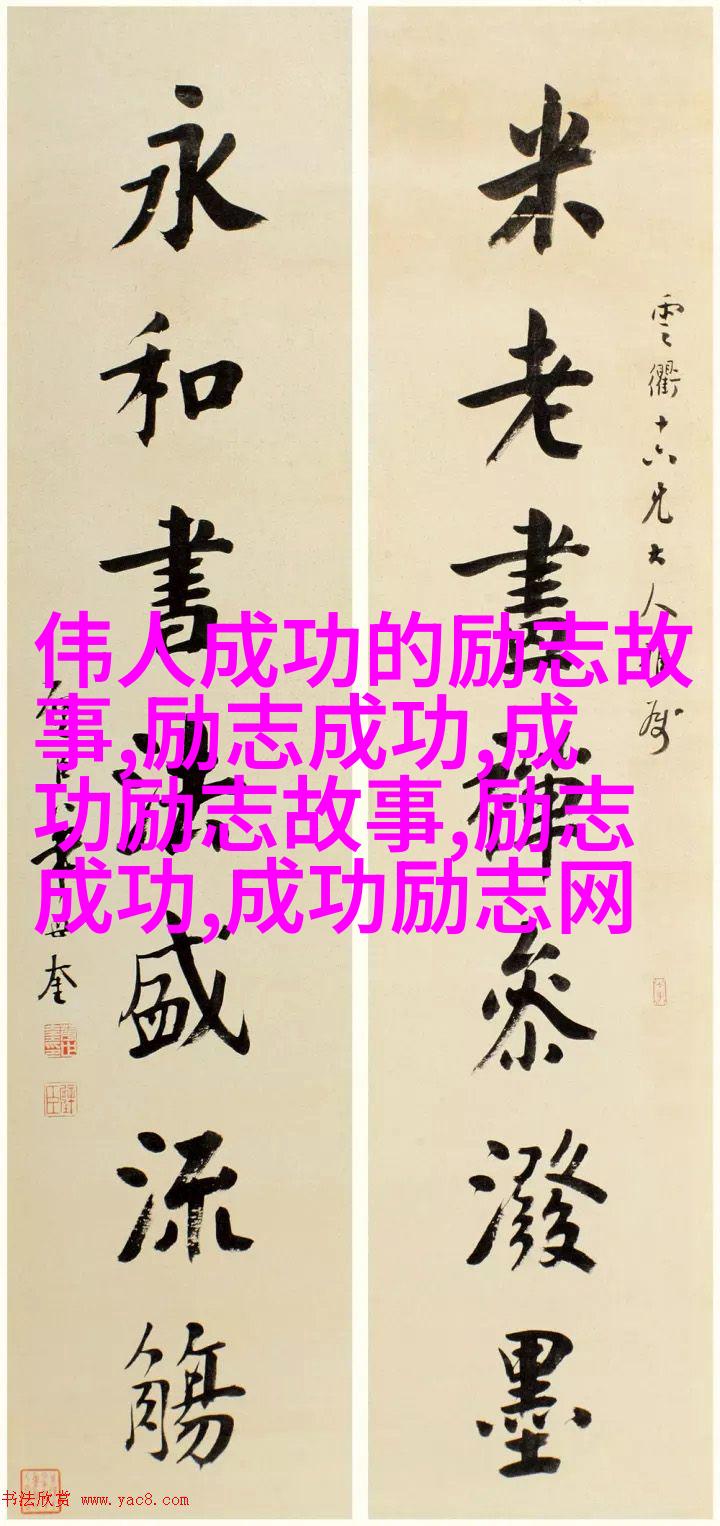 米老畫禪参潑墨
雲衢十六兄大人
永和書法盛流觴
奎
伟人成功的励志故
事,励志成功,成
功励志故事,励志
成功,成功励志网
书法欣赏 www.yac8.com